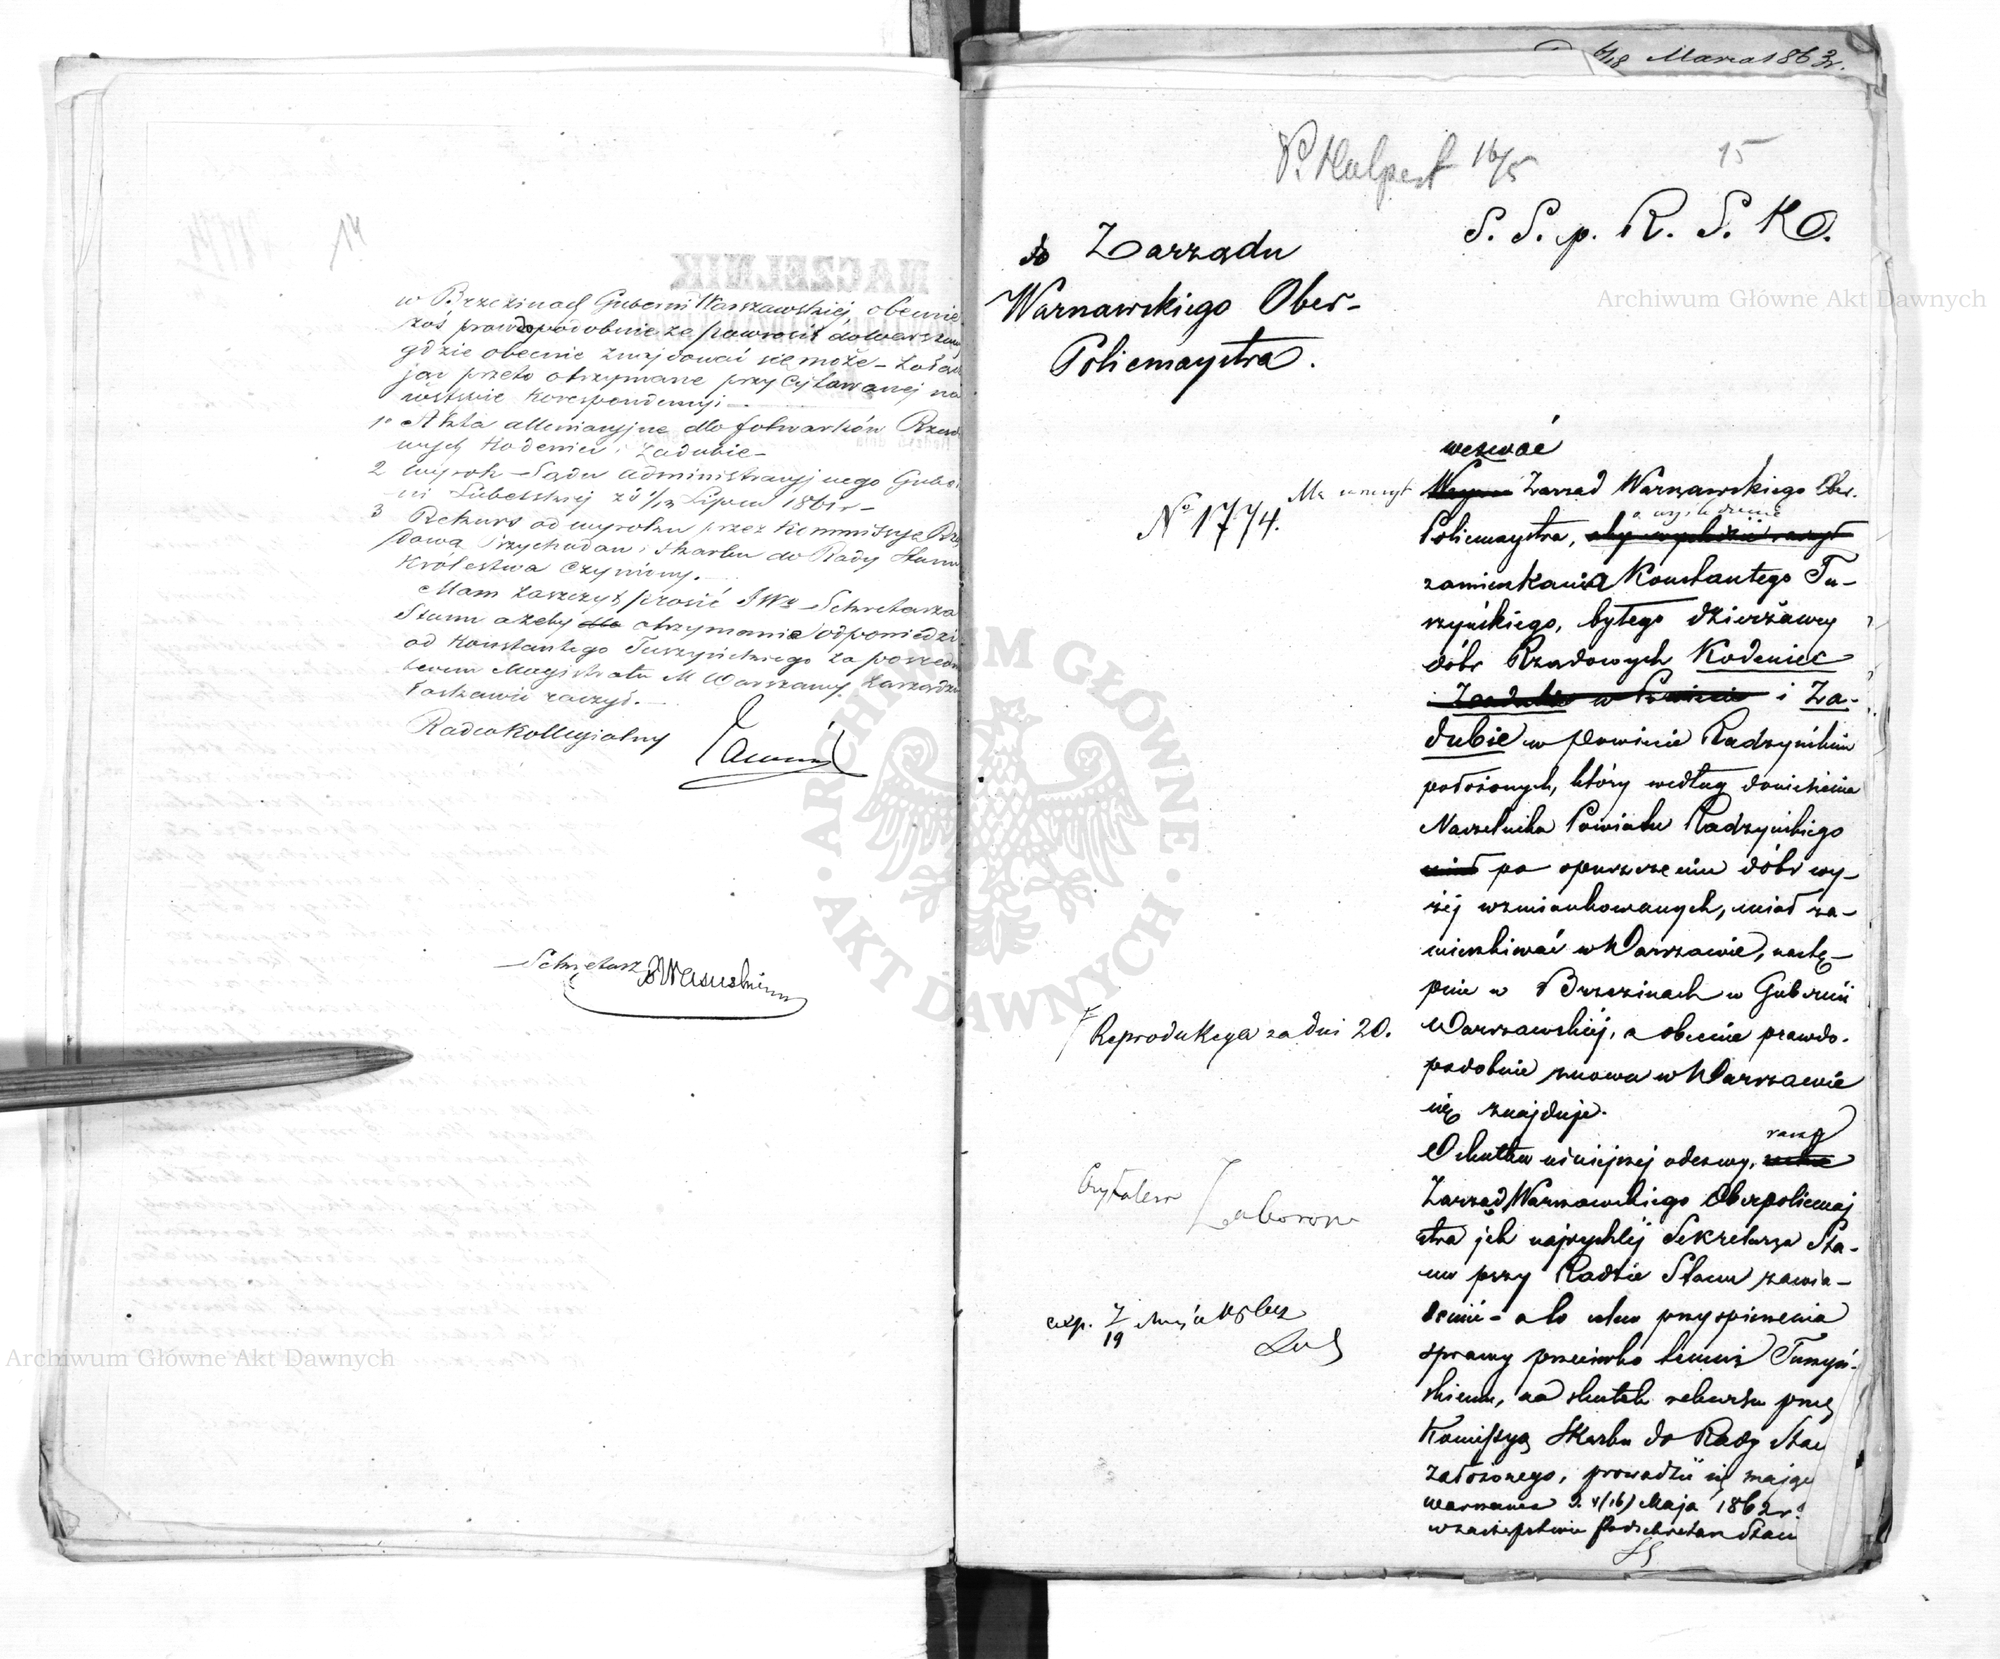 14
w Brzezinach Guberni Warszawskiej, obecnie
zaś prawdopodobnie za powrócił do Warszawy
gdzie obecnie znajdować się może – Załącza
jąc przeto otrzymane przy cytowanej na
wstępie korespondencyi –
1o Akta alleniacyjne dla folwarków Rządo
wych Kodeniec i Zadubie –
2 Wyrok Sądu Administracyjnego Guber
ni Lubelskiej z d 1/13 Lipca 1861 r –
3 Rekurs od wyroku przez Kommissyę Rzą
dową Przychodów i Skarbu do Rady Stanu
Królestwa czyniony. –
Mam zaszczyt prosić JWo Sekretarza
Stanu ażeby dla otrzymania odpowiedzi
od Konstantego Tuszyńskiego za pośredni
twem Magistratu M Warszawy Zarządzi
raczył. –
Radca Kollegialny
Sekretarz
6/18 Marca 1863 r.
P. Halpert 16/5
15
S. S. p. R. S. K.
do Zarządu
Warszawskiego Ober-
Policmaystra.
No 1774.
Ma zaszczyt
wezwać
Zarząd Warszawskiego Ober-
o wyśledzenie
Policmaystra,
zamieszkania Konstantego Tu-
szyńskiego, byłego dzierżawcy
dóbr Rządowych Kodeniec
i Za-
dubie w Powiecie Radzyńskim
położonych, który według doniesienia
Naczelnika Powiatu Radzyńskiego
miał po opuszczeniu dóbr wy-
żej wzmiankowanych, miał za-
mieszkiwać w Warszawie, nastę-
pnie w Brzezinach w Gubernii
Warszawskiej, a obecnie prawdo-
podobnie znowu w Warszawie
się znajduje.
Reprodukcya za dni 20.
raczy
O skutku niniejszej odezwy,
Zarząd Warszawskiego Oberpolicmaj
stra jak najrychlej Sekretarza Sta-
nu przy Radzie Stanu zawia-
domić – a to celem przyspieszenia
sprawy przeciwko temuż Tuszyń-
skiemu, na skutek rekursu przez
Komissyą Skarbu do Rady Stanu
założonego, prowadzić się mającej
Warszawa d. 4/(16) Maja 1862 r.
w zastępstwie Podsekretarz Stanu
Czytałem
exp. 7/19 Maja
Archiwum Główne Akt Dawnych
Archiwum Główne Akt Dawnych
ARCHIWUM GŁÓWNE · AKT DAWNYCH ·